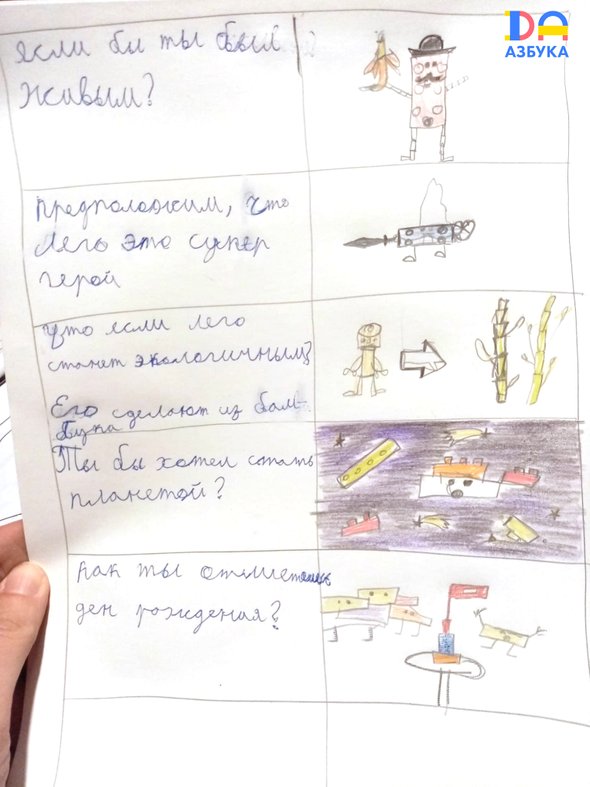 ДА
АЗБУКА
если бы ты был
живым?
предположим, что
лего это супер
герой
что если лего
станет экологичным?
Его сделают из бам-
бука
Ты бы хотел стать
планетой?
как ты отметишь
ден рождения?